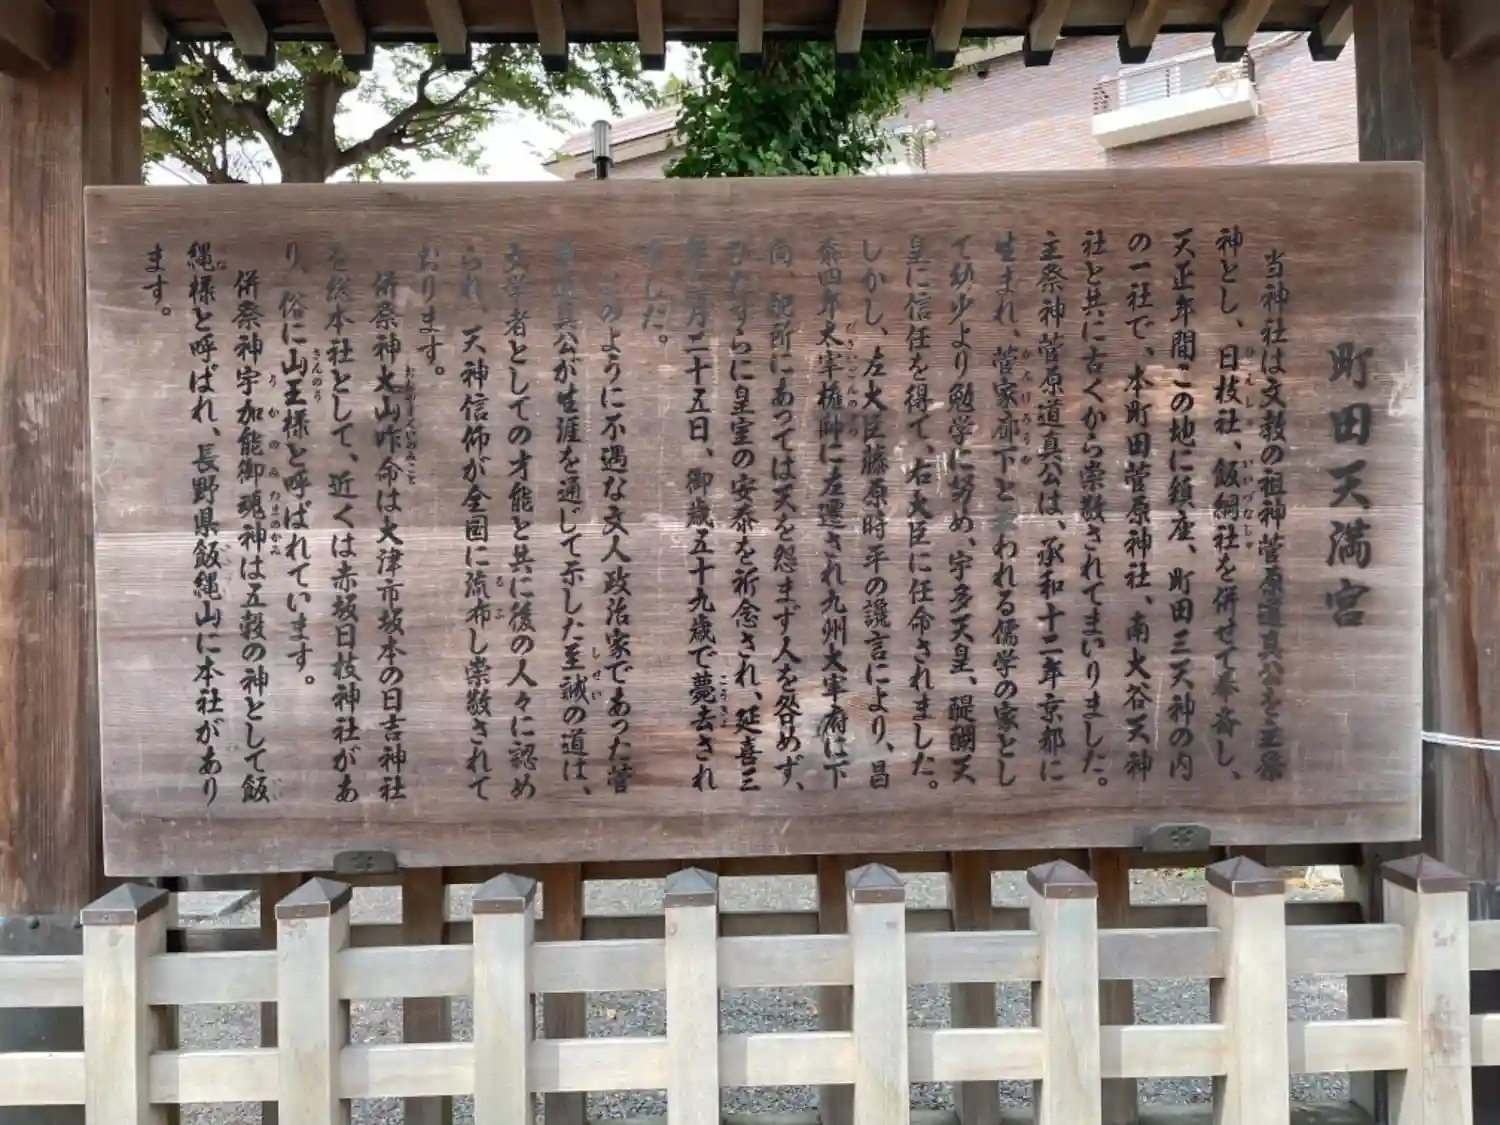 町田天満宮
当神社は文教の祖神菅原道真公を主祭
神とし、日枝社、飯綱社を併せて奉斎し、
天正年間この地に鎮座、町田三天神の内
の一社で、本町田菅原神社、南大谷天神
社と共に古くから崇敬されてまいりました。
主祭神菅原道真公は、承和十二年京都に
生まれ、菅家廊下と云われる儒学の家とし
て幼少より勉学に努め、宇多天皇、醍醐天
皇に信任を得て、右大臣に任命されました。
しかし、左大臣藤原時平の讒言により、昌
泰四年太宰権帥に左遷され九州大宰府に下
向、配所にあっては天を怨まず人を咎めず、
ひたすらに皇室の安泰を祈念され、延喜三
年二月二十五日、御歳五十九歳で薨去され
ました。
このように不遇な文人政治家であった菅
原道真公が生涯を通じて示した至誠の道は、
文学者としての才能と共に後の人々に認め
られ、天神信仰が全国に流布し崇敬されて
おります。
併祭神大山咋命は大津市坂本の日吉神社
を総本社として、近くは赤坂日枝神社があ
り、俗に山王様と呼ばれています。
併祭神宇加能御魂神は五穀の神として飯
縄様と呼ばれ、長野県飯縄山に本社があり
ます。